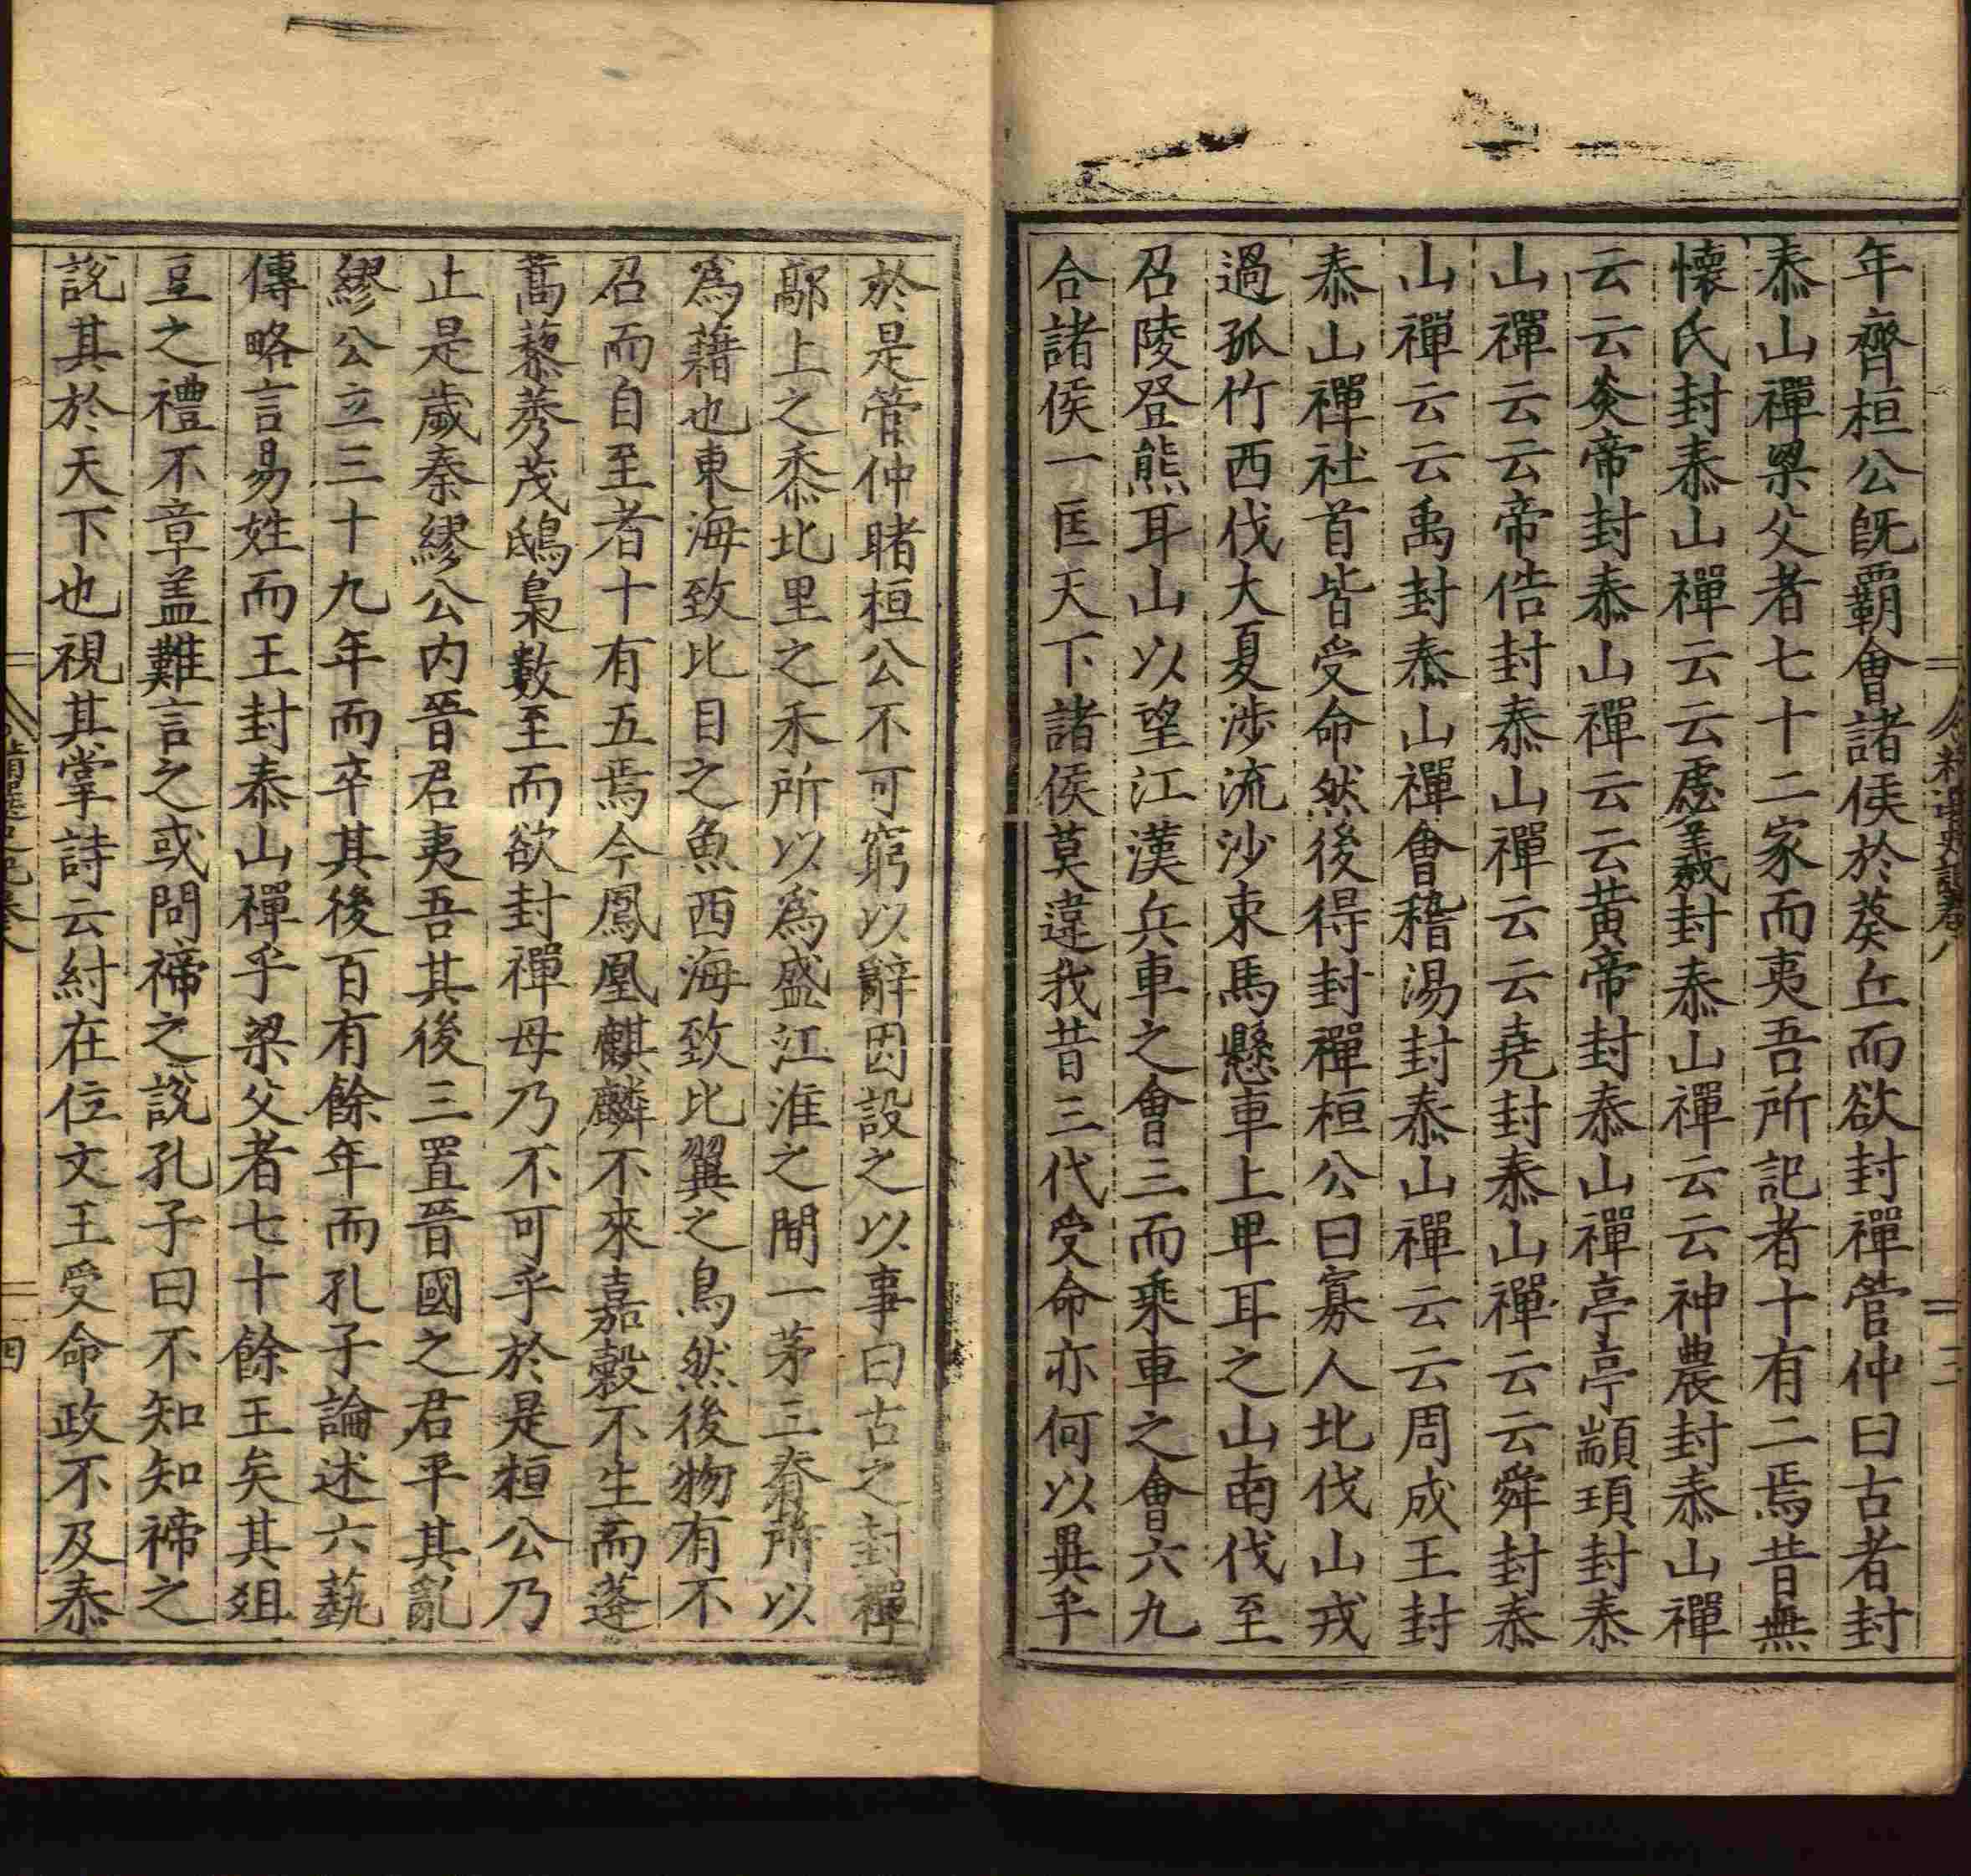 年齊桓公既覇會諸侯於葵丘而欲封禪管仲曰古者封
泰山禪梁父者七十二家而夷吾所記者十有二焉昔無
懷氏封泰山禪云云虙羲封泰山禪云云神農封泰山禪
云云炎帝封泰山禪云云黃帝封泰山禪亭亭顓頊封泰
山禪云云帝俈封泰山禪云云堯封泰山禪云云舜封泰
山禪云云禹封泰山禪會稽湯封泰山禪云云周成王封
泰山禪社首皆受命然後得封禪桓公曰寡人北伐山戎
過孤竹西伐大夏涉流沙束馬懸車上卑耳之山南伐至
召陵登熊耳山以望江漢兵車之會三而乘車之會六九
合諸侯一匡天下諸侯莫違我昔三代受命亦何以異乎
於是管仲睹桓公不可窮以辭因設之以事曰古之封禪
鄗上之黍北里之禾所以爲盛江淮之間一茅三脊所以
爲藉也東海致比目之魚西海致比翼之鳥然後物有不
召而自至者十有五焉今鳳凰麒麟不來嘉穀不生而蓬
蒿藜莠茂鴟梟數至而欲封禪毋乃不可乎於是桓公乃
止是歲秦繆公内晉君夷吾其後三置晉國之君平其亂
繆公立三十九年而卒其後百有餘年而孔子論述六藝
傳略言易姓而王封泰山禪乎梁父者七十餘王矣其俎
豆之禮不章盖難言之或問禘之說孔子曰不知知禘之
說其於天下也視其掌詩云紂在位文王受命政不及泰
四